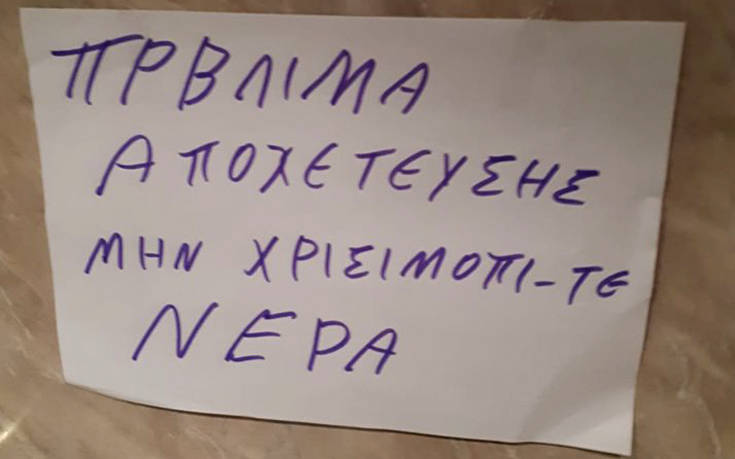 ΠΡΒΛΙΜΑ
ΑΠΟΧΕΤΕΥΣΗΣ
ΜΗΝ ΧΡΙΣΙΜΟΠΙ-ΤΕ
ΝΕΡΑ